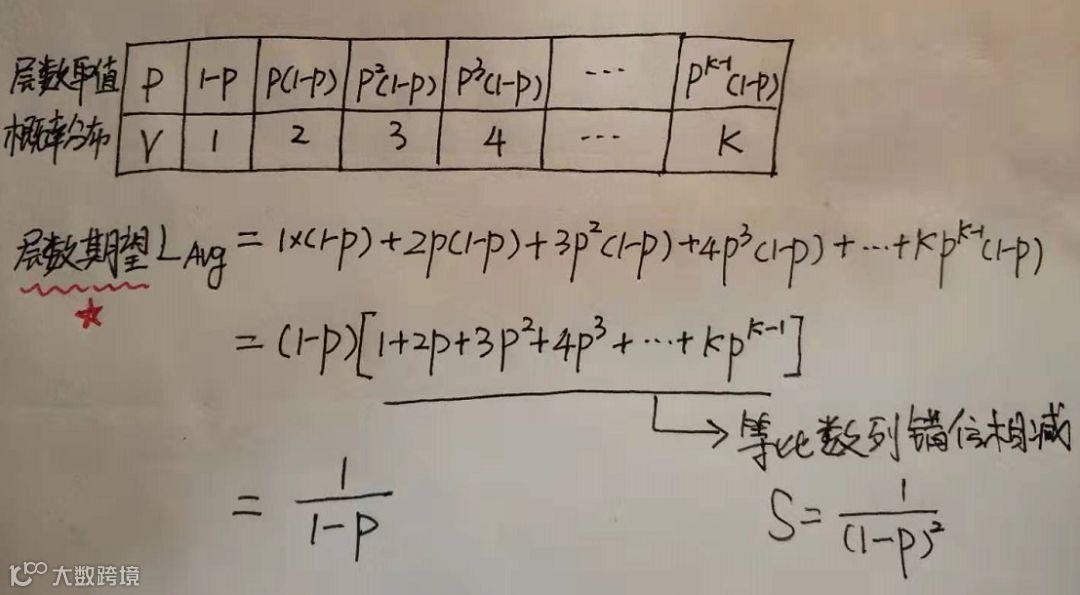 层数取值 P 1-P P(1-P) P²(1-P) P³(1-P) ... P^{K-1}(1-P)
概率分布 V 1 2 3 4 ... K
层数期望 L_{Avg} = 1×(1-P) + 2P(1-P) + 3P²(1-P) + 4P³(1-P) + ... + KP^{K-1}(1-P)
★
= (1-P)[1+2P+3P²+4P³+...+KP^{K-1}]
→ 等比数列错位相减
= \frac{1}{1-P} S = \frac{1}{(1-P)²}
K100 大数跨境